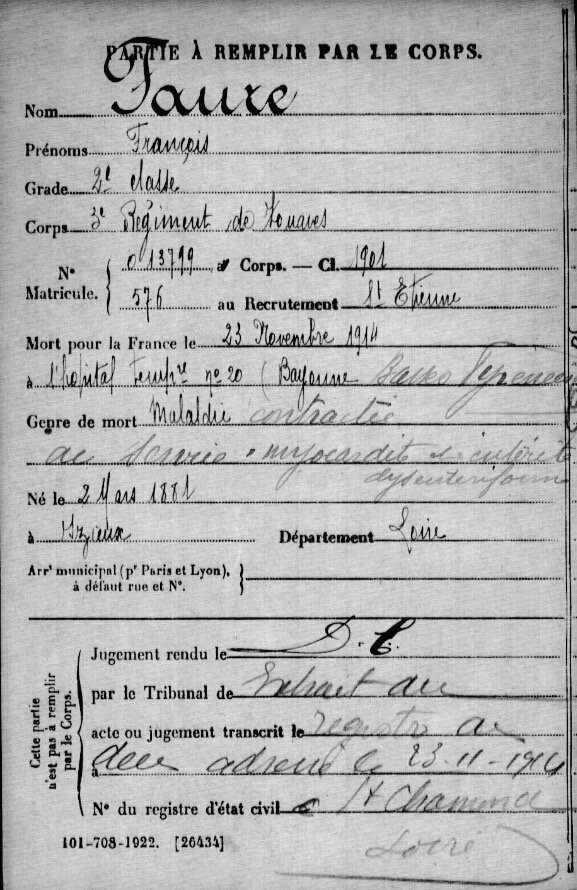 PARTIE À REMPLIR PAR LE CORPS.
Nom Faure
Prénoms François
Grade 2e classe
Corps 3e Régiment de Zouaves
N° Matricule. { 013799 au Corps. — Cl. 1901
576 au Recrutement St Etienne
Mort pour la France le 23 Novembre 1914
à l'hopital tempre n° 20 (Bayonne Basses Pyrenees
Genre de mort Maladie contractée
au service - myocardite & entérite
dysenteriforme
Né le 2 Mars 1881
à Izieux Département Loire
Arrt municipal (pr Paris et Lyon), à défaut rue et N°. }
Cette partie n'est pas à remplir par le Corps.
Jugement rendu le D.C.
par le Tribunal de Extrait du
acte ou jugement transcrit le registre de
à décès adressé le 23-11-1914
N° du registre d'état civil à St Chamond
Loire
101-708-1922. [26434]